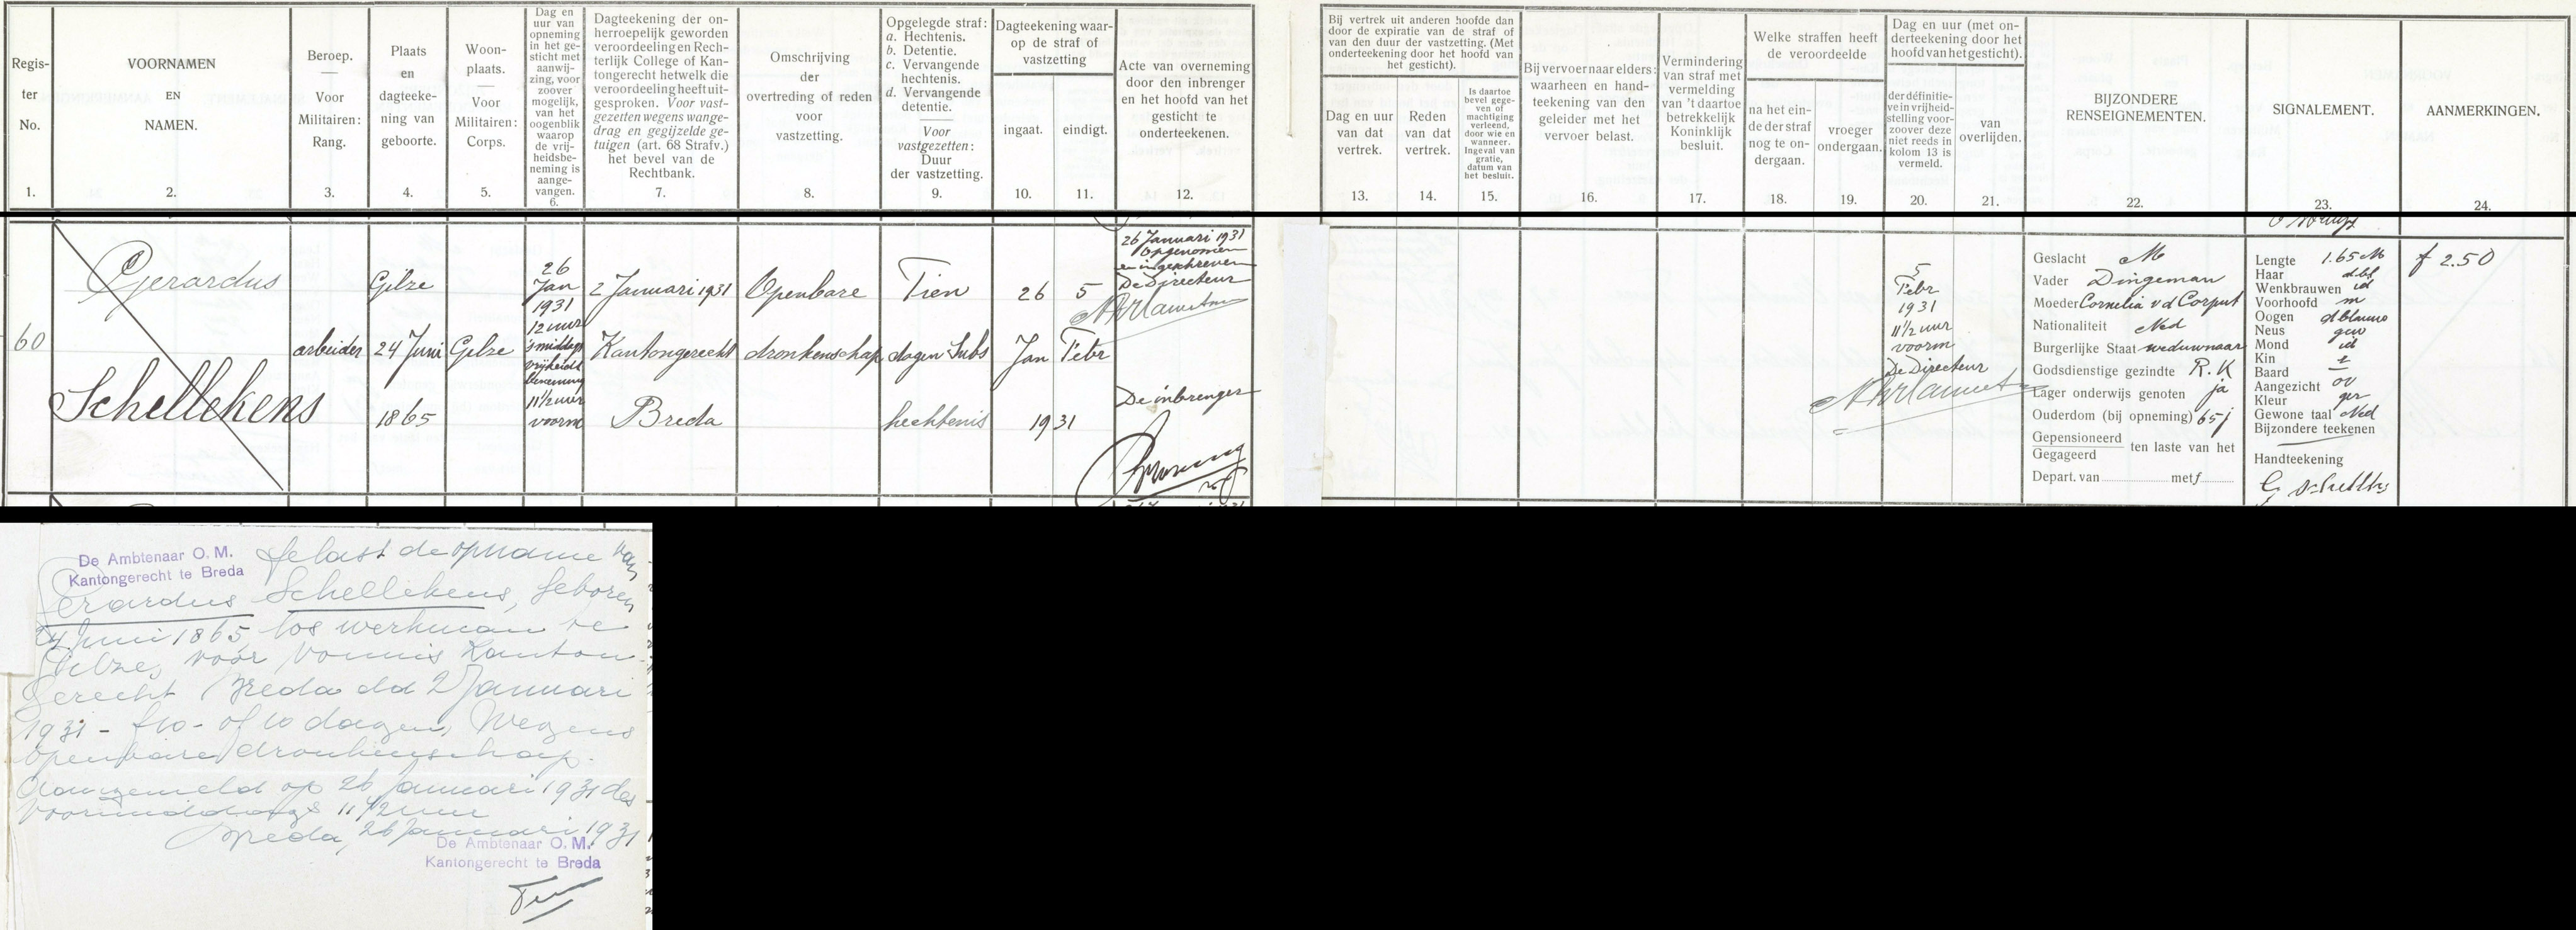 Regis-
ter
No.
1.
VOORNAMEN
EN
NAMEN.
2.
Beroep.
Voor
Militairen:
Rang.
3.
Plaats
en
dagteeke-
ning van
geboorte.
4.
Woon-
plaats.
Voor
Militairen:
Corps.
5.
Dag en
uur van
opneming
in het ge-
sticht met
aanwij-
zing, voor
zoover
mogelijk,
van het
oogenblik
waarop
de vrij-
heidsbe-
neming is
aange-
vangen.
6.
Dagteekening der on-
herroepelijk geworden
veroordeeling en Rech-
terlijk College of Kan-
tongerecht hetwelk die
veroordeeling heeft uit-
gesproken. Voor vast-
gezetten wegens wange-
drag en gegijzelde ge-
tuigen (art. 68 Strafv.)
het bevel van de
Rechtbank.
7.
Omschrijving
der
overtreding of reden
voor
vastzetting.
8.
Opgelegde straf:
a. Hechtenis.
b. Detentie.
c. Vervangende
hechtenis.
d. Vervangende
detentie.
Voor
vastgezetten:
Duur
der vastzetting.
9.
Dagteekening waar-
op de straf of
vastzetting
ingaat.
10.
eindigt.
11.
Acte van overneming
door den inbrenger
en het hoofd van het
gesticht te
onderteekenen.
12.
Bij vertrek uit anderen hoofde dan
door de expiratie van de straf of
van den duur der vastzetting. (Met
onderteekening door het hoofd van
het gesticht).
Dag en uur
van dat
vertrek.
13.
Reden
van dat
vertrek.
14.
Is daartoe
bevel gege-
ven of
machtiging
verleend,
door wie en
wanneer.
Ingeval van
gratie,
datum van
het besluit.
15.
Bij vervoer naar elders:
waarheen en hand-
teekening van den
geleider met het
vervoer belast.
16.
Vermindering
van straf met
vermelding
van 't daartoe
betrekkelijk
Koninklijk
besluit.
17.
Welke straffen heeft
de veroordeelde
na het ein-
de der straf
nog te on-
dergaan.
18.
vroeger
ondergaan.
19.
Dag en uur (met on-
derteekening door het
hoofd van het gesticht).
der définitie-
ve in vrijheid-
stelling voor-
zoover deze
niet reeds in
kolom 13 is
vermeld.
20.
van
overlijden.
21.
BIJZONDERE
RENSEIGNEMENTEN.
22.
SIGNALEMENT.
23.
AANMERKINGEN.
24.
60
Gerardus
Schellekens
arbeider
Gilze
24 Juni
1865
Gilze
26
Jan
1931
12 uur
's middags
vrijheids
beneming
11 1/2 uur
voorm
2 Januari 1931
Kantongerecht
Breda
Openbare
dronkenschap
Tien
dagen Subs
hechtenis
26 5
Jan Febr
1931
26 Januari 1931
opgenomen
en ingeschreven
De Directeur
De inbrenger
5
Febr
1931
11 1/2 uur
voorm
De Directeur
Geslacht M
Vader Dingeman
Moeder Cornelia v d Corput
Nationaliteit Ned
Burgerlijke Staat weduwnaar
Godsdienstige gezindte R.K
Lager onderwijs genoten ja
Ouderdom (bij opneming) 65 j
Gepensioneerd
Gegageerd
ten laste van het
Depart. van met f
Lengte 1.65 M
Haar dbl
Wenkbrauwen id
Voorhoofd m
Oogen dblauw
Neus gew
Mond id
Kin
Baard
Aangezicht ov
Kleur gez
Gewone taal Ned
Bijzondere teekenen
Handteekening
f 2.50
De Ambtenaar O. M.
Kantongerecht te Breda
gelast de opname van
Gerardus Schellekens, geboren
24 Juni 1865, los werkman te
Gilze, voor vonnis Kanton
gerecht Breda dd 2 Januari
1931 - f 10 - of 10 dagen, wegens
openbare dronkenschap.
Aangemeld op 26 Januari 1931 des
voormiddags 11 1/2 uur
Breda, 26 Januari 1931
De Ambtenaar O. M.
Kantongerecht te Breda